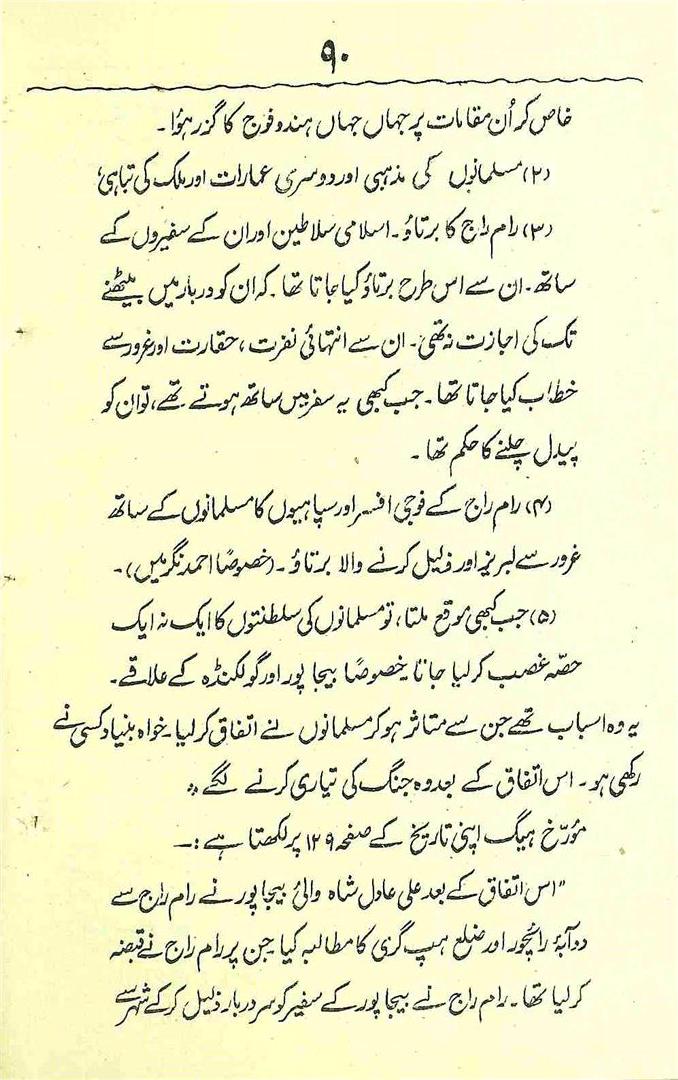 ۹۰
خاص کر اُن مقامات پر جہاں جہاں ہندو فوج کا گزر ہؤا۔
(۲) مسلمانوں کی مذہبی اور دوسری عمارات اور ملک کی تباہی؛
(۳) رام راج کا برتاؤ۔ اسلامی سلاطین اور ان کے سفیروں کے
ساتھ۔ ان سے اس طرح برتاؤ کیا جاتا تھا۔ کہ ان کو دربار میں بیٹھنے
تک کی اجازت نہ تھی۔ ان سے انتہائی نفرت، حقارت اور غرور سے
خطاب کیا جاتا تھا۔ جب کبھی یہ سفر میں ساتھ ہوتے تھے، تو ان کو
پیدل چلنے کا حکم تھا۔
(۴) رام راج کے فوجی افسر اور سپاہیوں کا مسلمانوں کے ساتھ
غرور سے لبریز اور ذلیل کرنے والا برتاؤ۔ (خصوصًا احمد نگر میں)۔
(۵) جب کبھی موقع ملتا، تو مسلمانوں کی سلطنتوں کا ایک نہ ایک
حصّہ غصب کر لیا جاتا خصوصًا بیجاپور اور گولکنڈہ کے علاقے۔
یہ وہ اسباب تھے جن سے متاثر ہو کر مسلمانوں نے اتفاق کر لیا۔ خواہ بنیاد کسی نے
رکھی ہو۔ اس اتفاق کے بعد وہ جنگ کی تیاری کرنے لگے"
مؤرّخ ہیگ اپنی تاریخ کے صفحہ ۱۲۹ پر لکھتا ہے:۔
"اس اتفاق کے بعد علی عادل شاہ والیٔ بیجاپور نے رام راج سے
دوآبۂ رائچور اور ضلع ہپ گری کا مطالبہ کیا جن پر رام راج نے قبضہ
کر لیا تھا۔ رام راج نے بیجاپور کے سفیر کو سرِ دربار ذلیل کر کے شہر سے